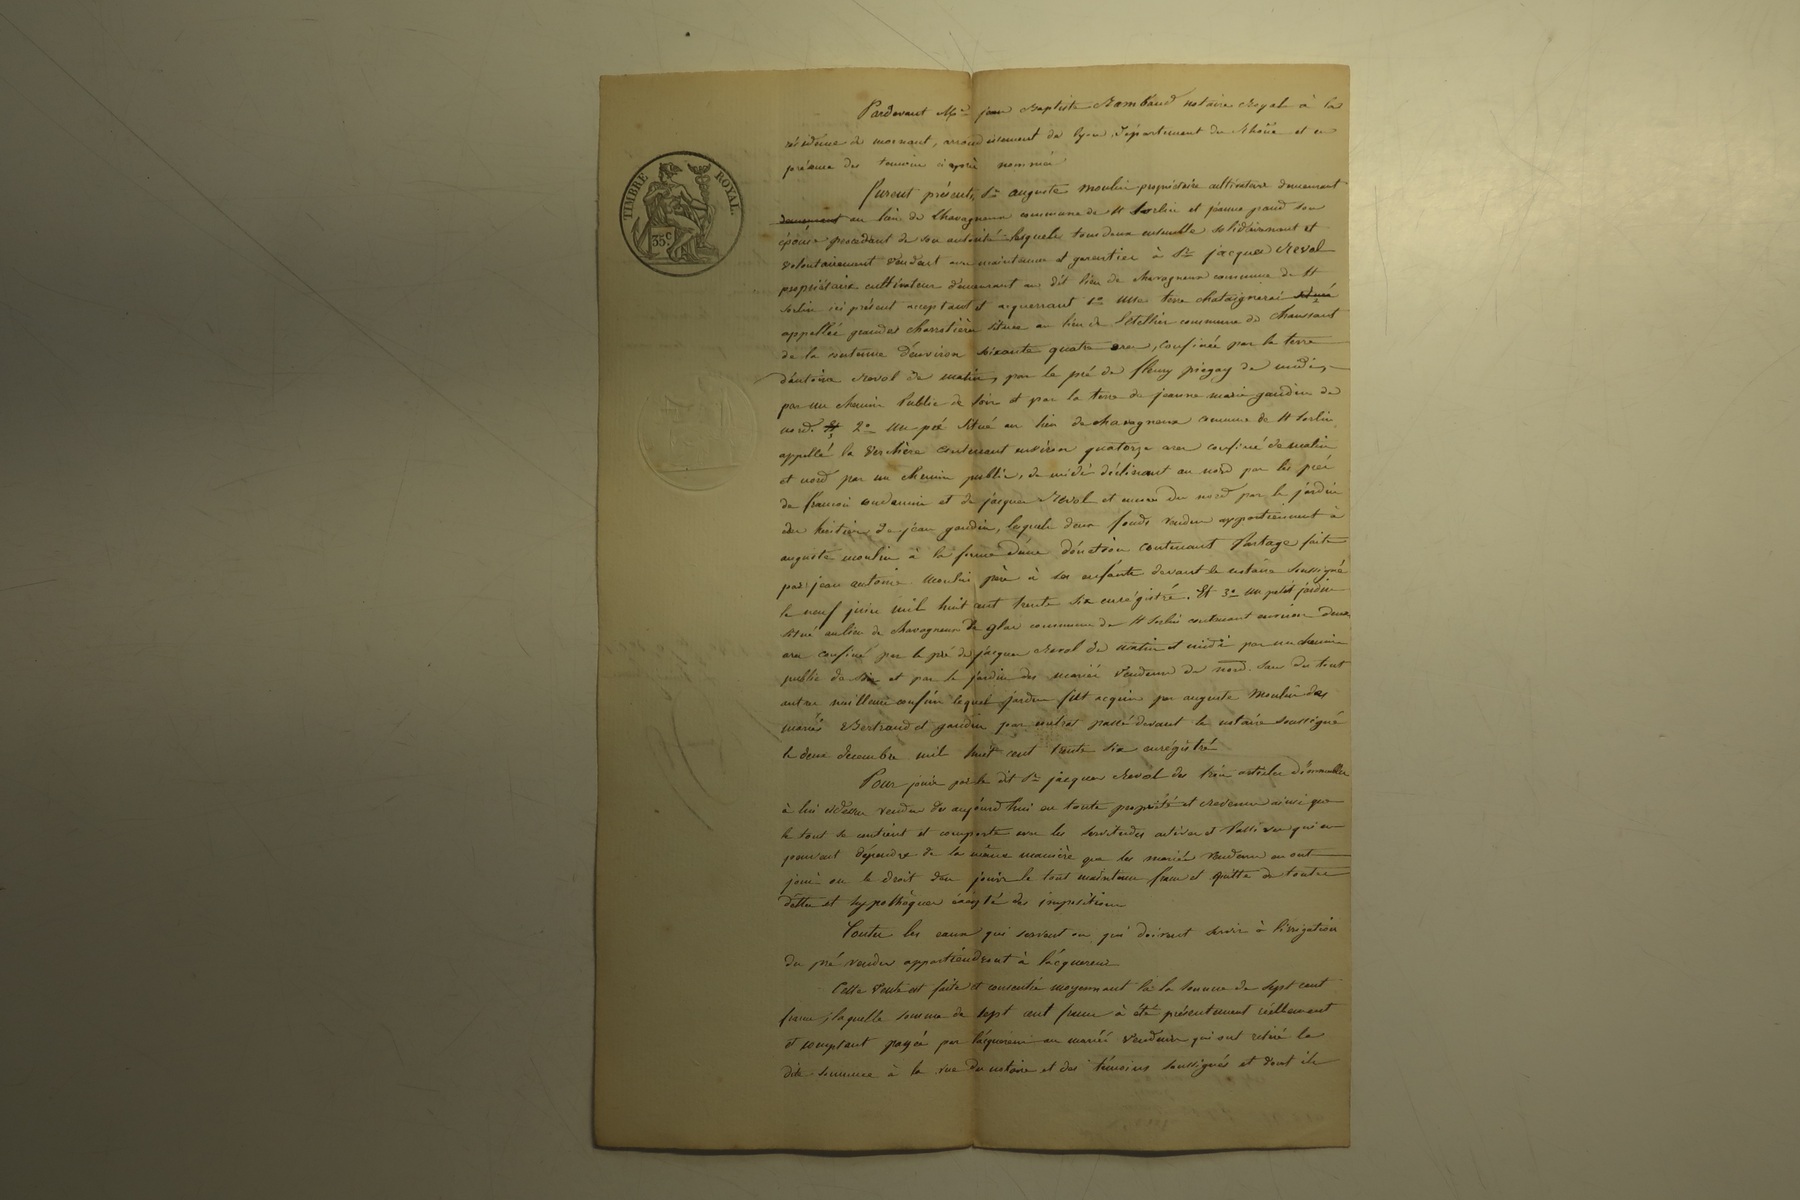 TIMBRE ROYAL.
35c
Pardevant Me jean Baptiste Rambaud notaire Royal à la
résidence de mornant, arrondissement de lyon, département du Rhône et en
présence des temoins ci après nommés
Furent présents, Sr auguste moulin propriétaire cultivateur demeurant
demeurant au lieu de Chavagneux commune de St Sorlin et jeanne son
épouse procedant de son autorité lesquels tous deux ensemble solidairement et
volontairement vendent avec maintenue et garantier à Sr jacques Reval
propriétaire cultivateur demeurant au dit lieu de chavagneux commune de St
Sorlin ici présent acceptant et acquerrant 1o une terre chataigneraie située
appellée grandes charretières située au lieu de commune de Chaussant
de la contenue d'environ soixante quatre ares, confinée par la terre
d'antoine Reval de matin, par le pré de fleury de midi,
par un chemin Public de soir et par la terre de jeanne marie gaudin de
nord. Et 2o un pré situé au lieu de chavagneux commune de St Sorlin
appellé la Verchère contenant environ quatorze ares confiné de matin
et nord par un chemin public, de midi déclinant au nord par les prés
de françois et de jacques Reval et encore du nord par le jardin
des héritiers de jean gaudin, lesquels deux fonds vendus appartiennent à
auguste moulin à la forme d'une donation contenant Partage faite
par jean antoine moulin père à ses enfants devant le notaire soussigné
le neuf juin mil huit cent trente six enrégistré. Et 3o un petit jardin
situé au lieu de chavagneux de commune de St Sorlin contenant environ deux
ares confiné par le pré de jacques Reval de matin et midi par un chemin
public de soir et par le jardin des mariés vendeurs de nord. Sauf du tout
autres meilleurs confins lequel jardin fut acquis par auguste Moulin des
mariés Bertrand et gaudin par contrat passé devant le notaire soussigné
le deux decembre mil huit cent trente six enrégistré
Pour jouir par le dit Sr jacques Reval des trois articles d'immeubles
à lui vendus dès aujourd'hui en toute propriété et ainsi que
le tout se contient et comporte avec les servitudes actives et Passives qui en
peuvent dépendre de la même manière que les mariés vendeurs en ont
joui ou le droit d'en jouir le tout maintenu franc et quitte de toutes
dettes et hypothèques excepté des impositions
Toutes les eaux qui servent ou qui doivent servir à l'irrigation
du pré vendu appartiendront à l'acquereur
Cette vente est faite et consentie moyennant la la somme de sept cent
francs, laquelle somme de sept cent francs à été présentement réellement
et comptant payée par l'acquereur aux mariés vendeurs qui ont retiré la
dite somme à la vue du notaire et des témoins soussignés et dont ils